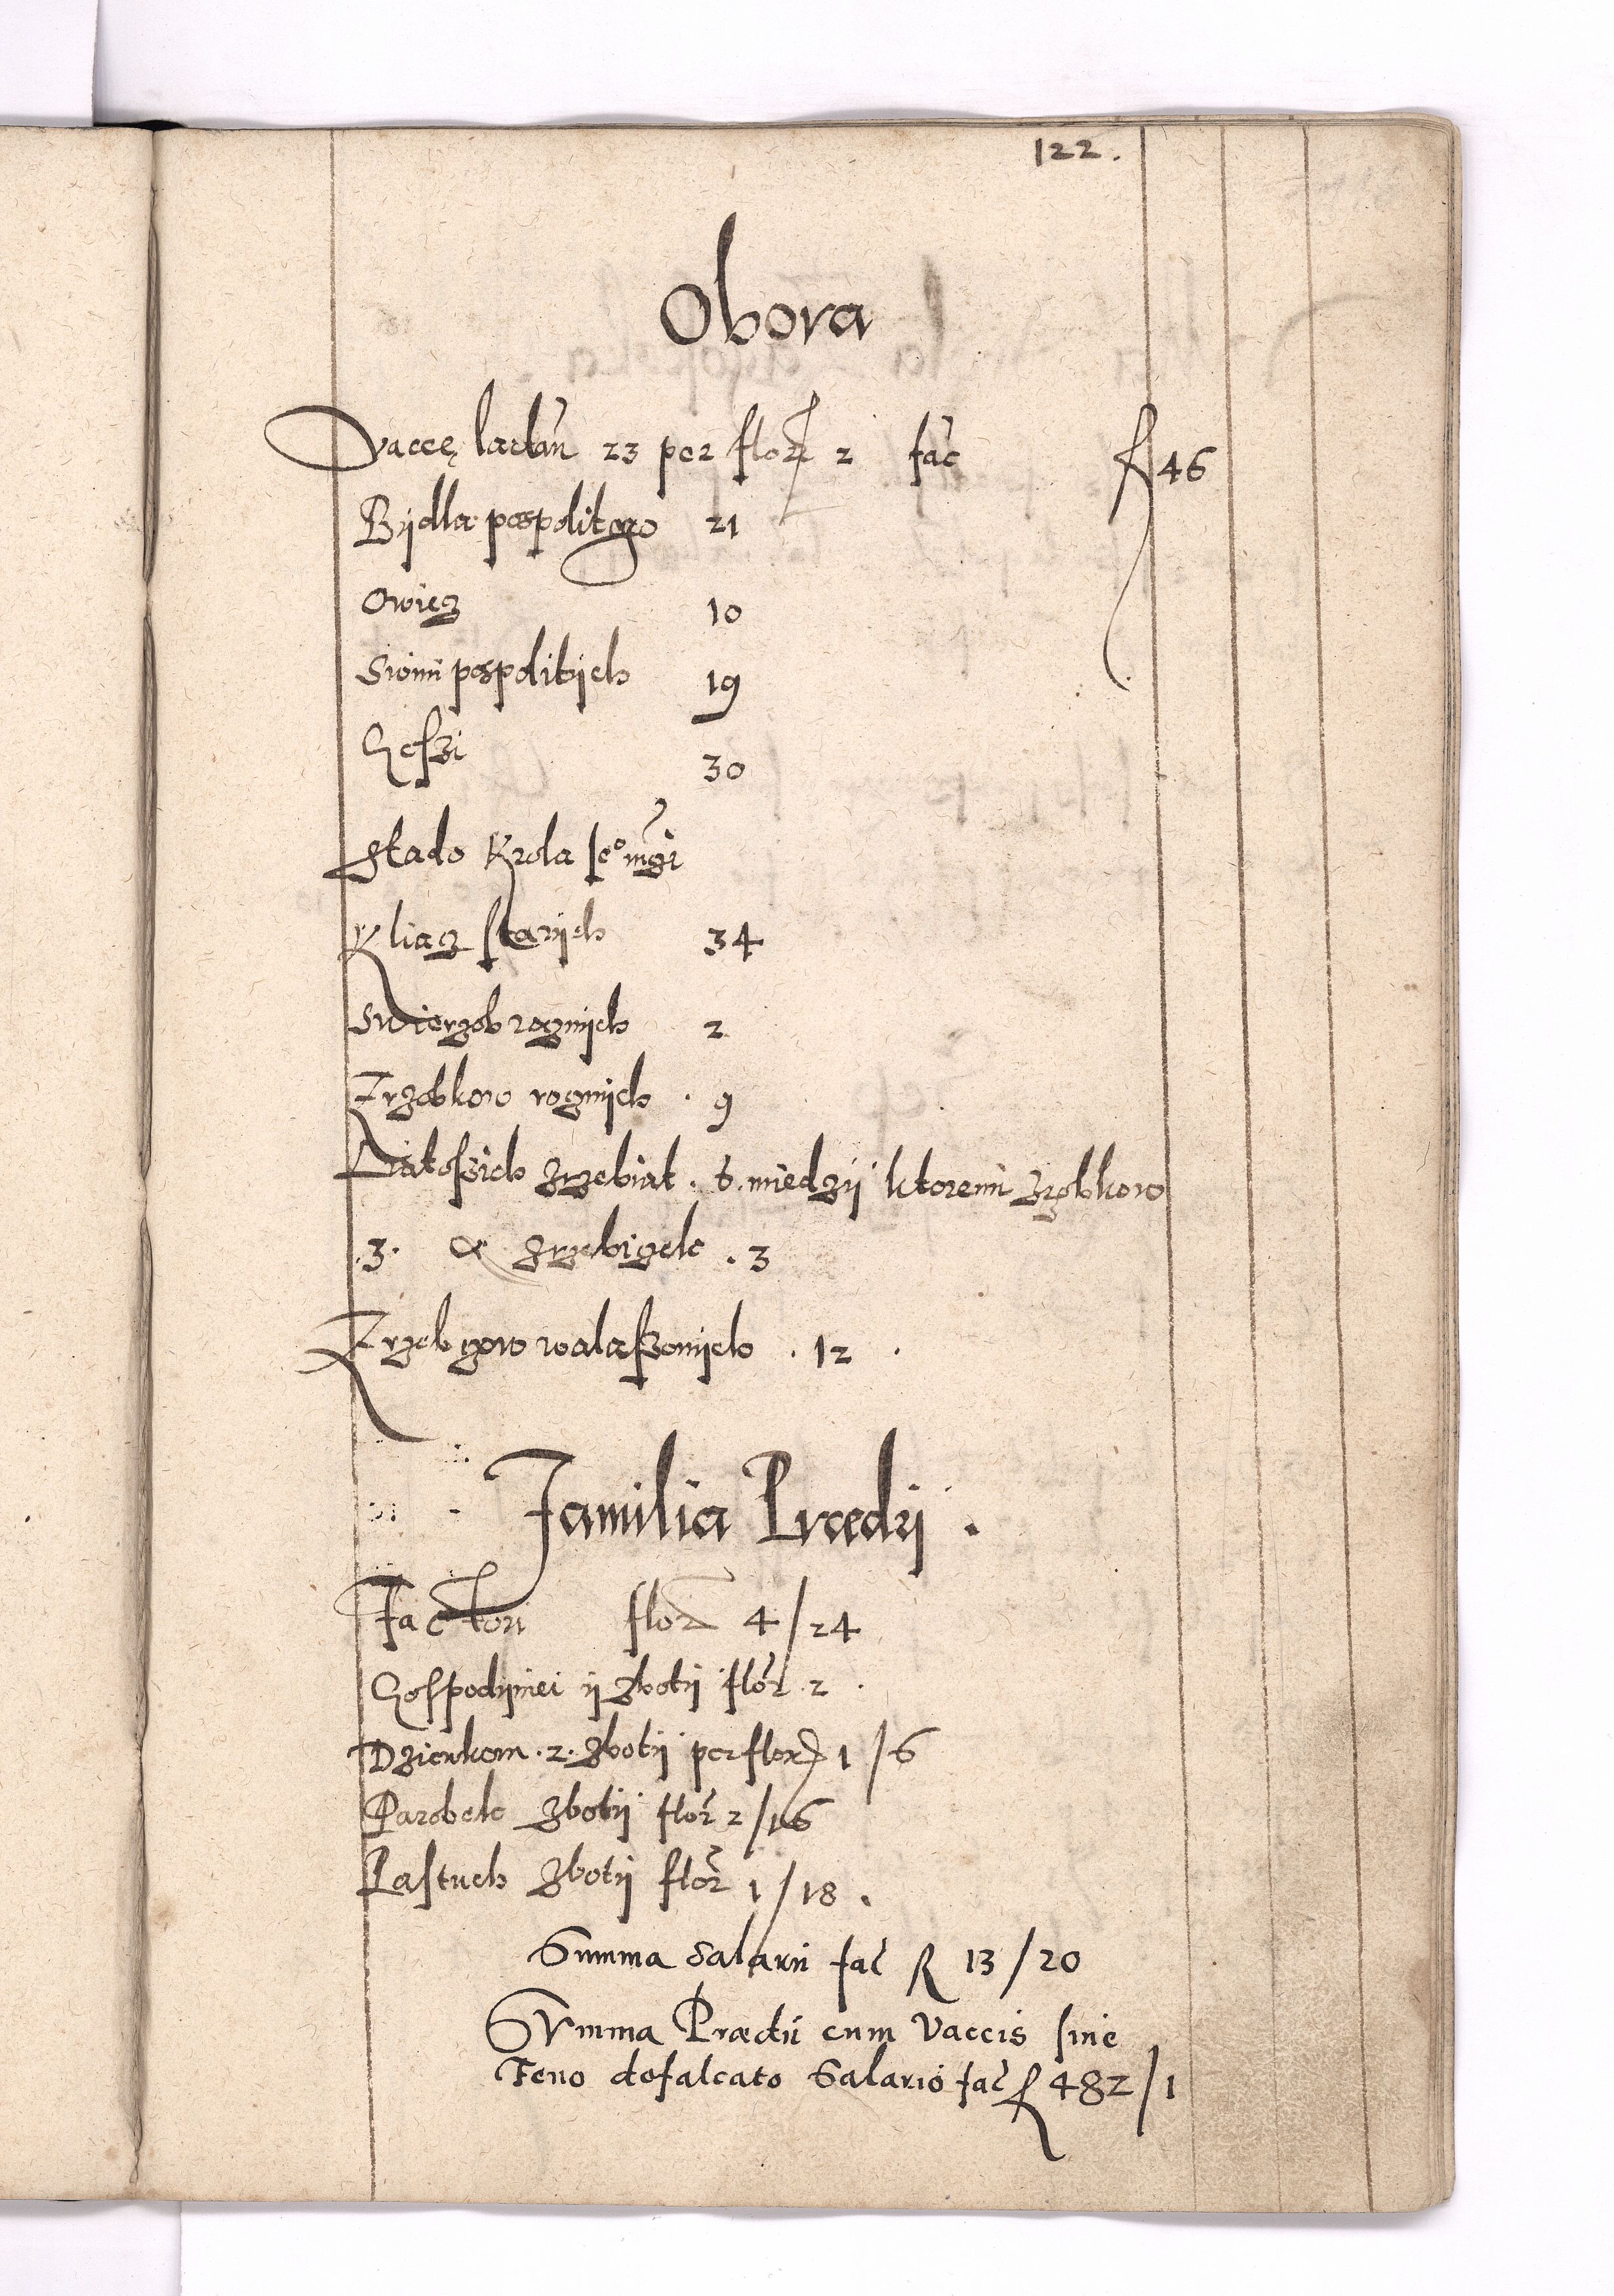 122.
Obora
Vaccę lactãn 23 per flor 2 fac̃ fl 46
Bydla pospolitego 21
Owiecz 10
Swini pospolitych 19
Gęsszi 30
Stado Krola Je° mći
Kliacz starych 34
Swierzob rocznych 2
Zrzobkow rocznych . 9
Liatoszich zrzebiat . 6. miedzy ktoremi zrzobkow
.3. & zrzebiczek . 3
Zrzebczow walaszonych . 12 .
Familia Prædij .
Factori flor 4/24
Gospodyniei y zboty flor 2 .
Dziewkom .2. zboty per flor 1/6
Parobek zboty flor 2/16
Pastuch zboty flor 1/18 .
Summa Salarii fac̃ fl 13/20
Summa Prædii cum Vaccis sine
Feno defalcato Salario fac̃ fl 482/1